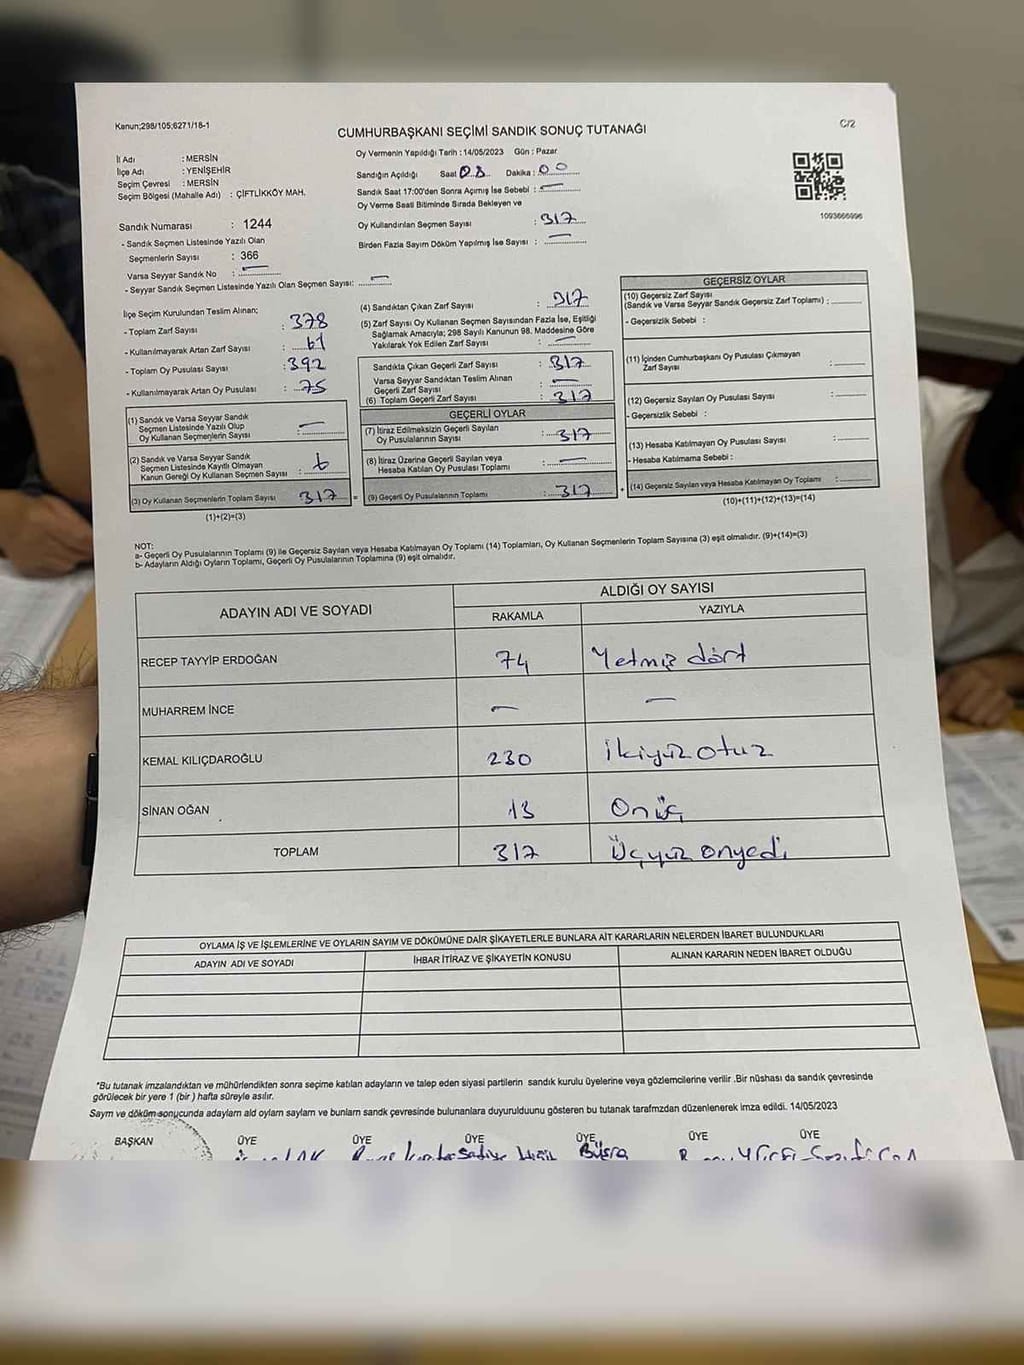 Kanun;298/105;6271/18-1
C/2
CUMHURBAŞKANI SEÇİMİ SANDIK SONUÇ TUTANAĞI
İl Adı : MERSİN
İlçe Adı : YENİŞEHİR
Seçim Çevresi : MERSİN
Seçim Bölgesi (Mahalle Adı) : ÇİFTLİKKÖY MAH.
Sandık Numarası : 1244
- Sandık Seçmen Listesinde Yazılı Olan
Seçmenlerin Sayısı : 366
Varsa Seyyar Sandık No : —
- Seyyar Sandık Seçmen Listesinde Yazılı Olan Seçmen Sayısı: —
Oy Vermenin Yapıldığı Tarih : 14/05/2023 Gün : Pazar
Sandığın Açıldığı Saat 08 Dakika : 00
Sandık Saat 17:00'den Sonra Açımış İse Sebebi : —
Oy Verme Saati Bitiminde Sırada Bekleyen ve
Oy Kullandırılan Seçmen Sayısı : 317
Birden Fazla Sayım Döküm Yapılmış İse Sayısı : —
1093666996
İlçe Seçim Kurulundan Teslim Alınan;
- Toplam Zarf Sayısı : 378
- Kullanılmayarak Artan Zarf Sayısı : 61
- Toplam Oy Pusulası Sayısı : 392
- Kullanılmayarak Artan Oy Pusulası : 75
(1) Sandık ve Varsa Seyyar Sandık
Seçmen Listesinde Yazılı Olup
Oy Kullanan Seçmenlerin Sayısı : —
(2) Sandık ve Varsa Seyyar Sandık
Seçmen Listesinde Kayıtlı Olmayan
Kanun Gereği Oy Kullanan Seçmen Sayısı : 6
(3) Oy Kullanan Seçmenlerin Toplam Sayısı : 317 =
(1)+(2)=(3)
(4) Sandıktan Çıkan Zarf Sayısı : 317
(5) Zarf Sayısı Oy Kullanan Seçmen Sayısından Fazla İse, Eşitliği
Sağlamak Amacıyla; 298 Sayılı Kanunun 98. Maddesine Göre
Yakılarak Yok Edilen Zarf Sayısı : —
Sandıkta Çıkan Geçerli Zarf Sayısı : 317
Varsa Seyyar Sandıktan Teslim Alınan
Geçerli Zarf Sayısı : —
(6) Toplam Geçerli Zarf Sayısı : 317
GEÇERLİ OYLAR
(7) İtiraz Edilmeksizin Geçerli Sayılan
Oy Pusulalarının Sayısı : 317
(8) İtiraz Üzerine Geçerli Sayılan veya
Hesaba Katılan Oy Pusulası Toplamı : —
(9) Geçerli Oy Pusulalarının Toplamı : 317 +
GEÇERSİZ OYLAR
(10) Geçersiz Zarf Sayısı
(Sandık ve Varsa Seyyar Sandık Geçersiz Zarf Toplamı) :
- Geçersizlik Sebebi :
(11) İçinden Cumhurbaşkanı Oy Pusulası Çıkmayan
Zarf Sayısı :
(12) Geçersiz Sayılan Oy Pusulası Sayısı :
- Geçersizlik Sebebi :
(13) Hesaba Katılmayan Oy Pusulası Sayısı :
- Hesaba Katılmama Sebebi :
(14) Geçersiz Sayılan veya Hesaba Katılmayan Oy Toplamı :
(10)+(11)+(12)+(13)=(14)
NOT:
a- Geçerli Oy Pusulalarının Toplamı (9) ile Geçersiz Sayılan veya Hesaba Katılmayan Oy Toplamı (14) Toplamları, Oy Kullanan Seçmenlerin Toplam Sayısına (3) eşit olmalıdır. (9)+(14)=(3)
b- Adayların Aldığı Oyların Toplamı, Geçerli Oy Pusulalarının Toplamına (9) eşit olmalıdır.
ADAYIN ADI VE SOYADI
ALDIĞI OY SAYISI
RAKAMLA YAZIYLA
RECEP TAYYİP ERDOĞAN 74 Yetmiş dört
MUHARREM İNCE — —
KEMAL KILIÇDAROĞLU 230 ikiyüz otuz
SİNAN OĞAN 13 Onüç
TOPLAM 317 Üçyüz onyedi
OYLAMA İŞ VE İŞLEMLERİNE VE OYLARIN SAYIM VE DÖKÜMÜNE DAİR ŞİKAYETLERLE BUNLARA AİT KARARLARIN NELERDEN İBARET BULUNDUKLARI
ADAYIN ADI VE SOYADI İHBAR İTİRAZ VE ŞİKAYETİN KONUSU ALINAN KARARIN NEDEN İBARET OLDUĞU
*Bu tutanak imzalandıktan ve mühürlendikten sonra seçime katılan adayların ve talep eden siyasi partilerin sandık kurulu üyelerine veya gözlemcilerine verilir .Bir nüshası da sandık çevresinde
görülecek bir yere 1 (bir ) hafta süreyle asılır.
Saym ve döküm sonycunda adaylam ald oylam saylam ve bunlam sandk çevresinde bulunanlara duyurulduunu gösteren bu tutanak tarafmzdan düzenlenerek imza edildi. 14/05/2023
BAŞKAN ÜYE ÜYE ÜYE ÜYE ÜYE ÜYE
Büşra